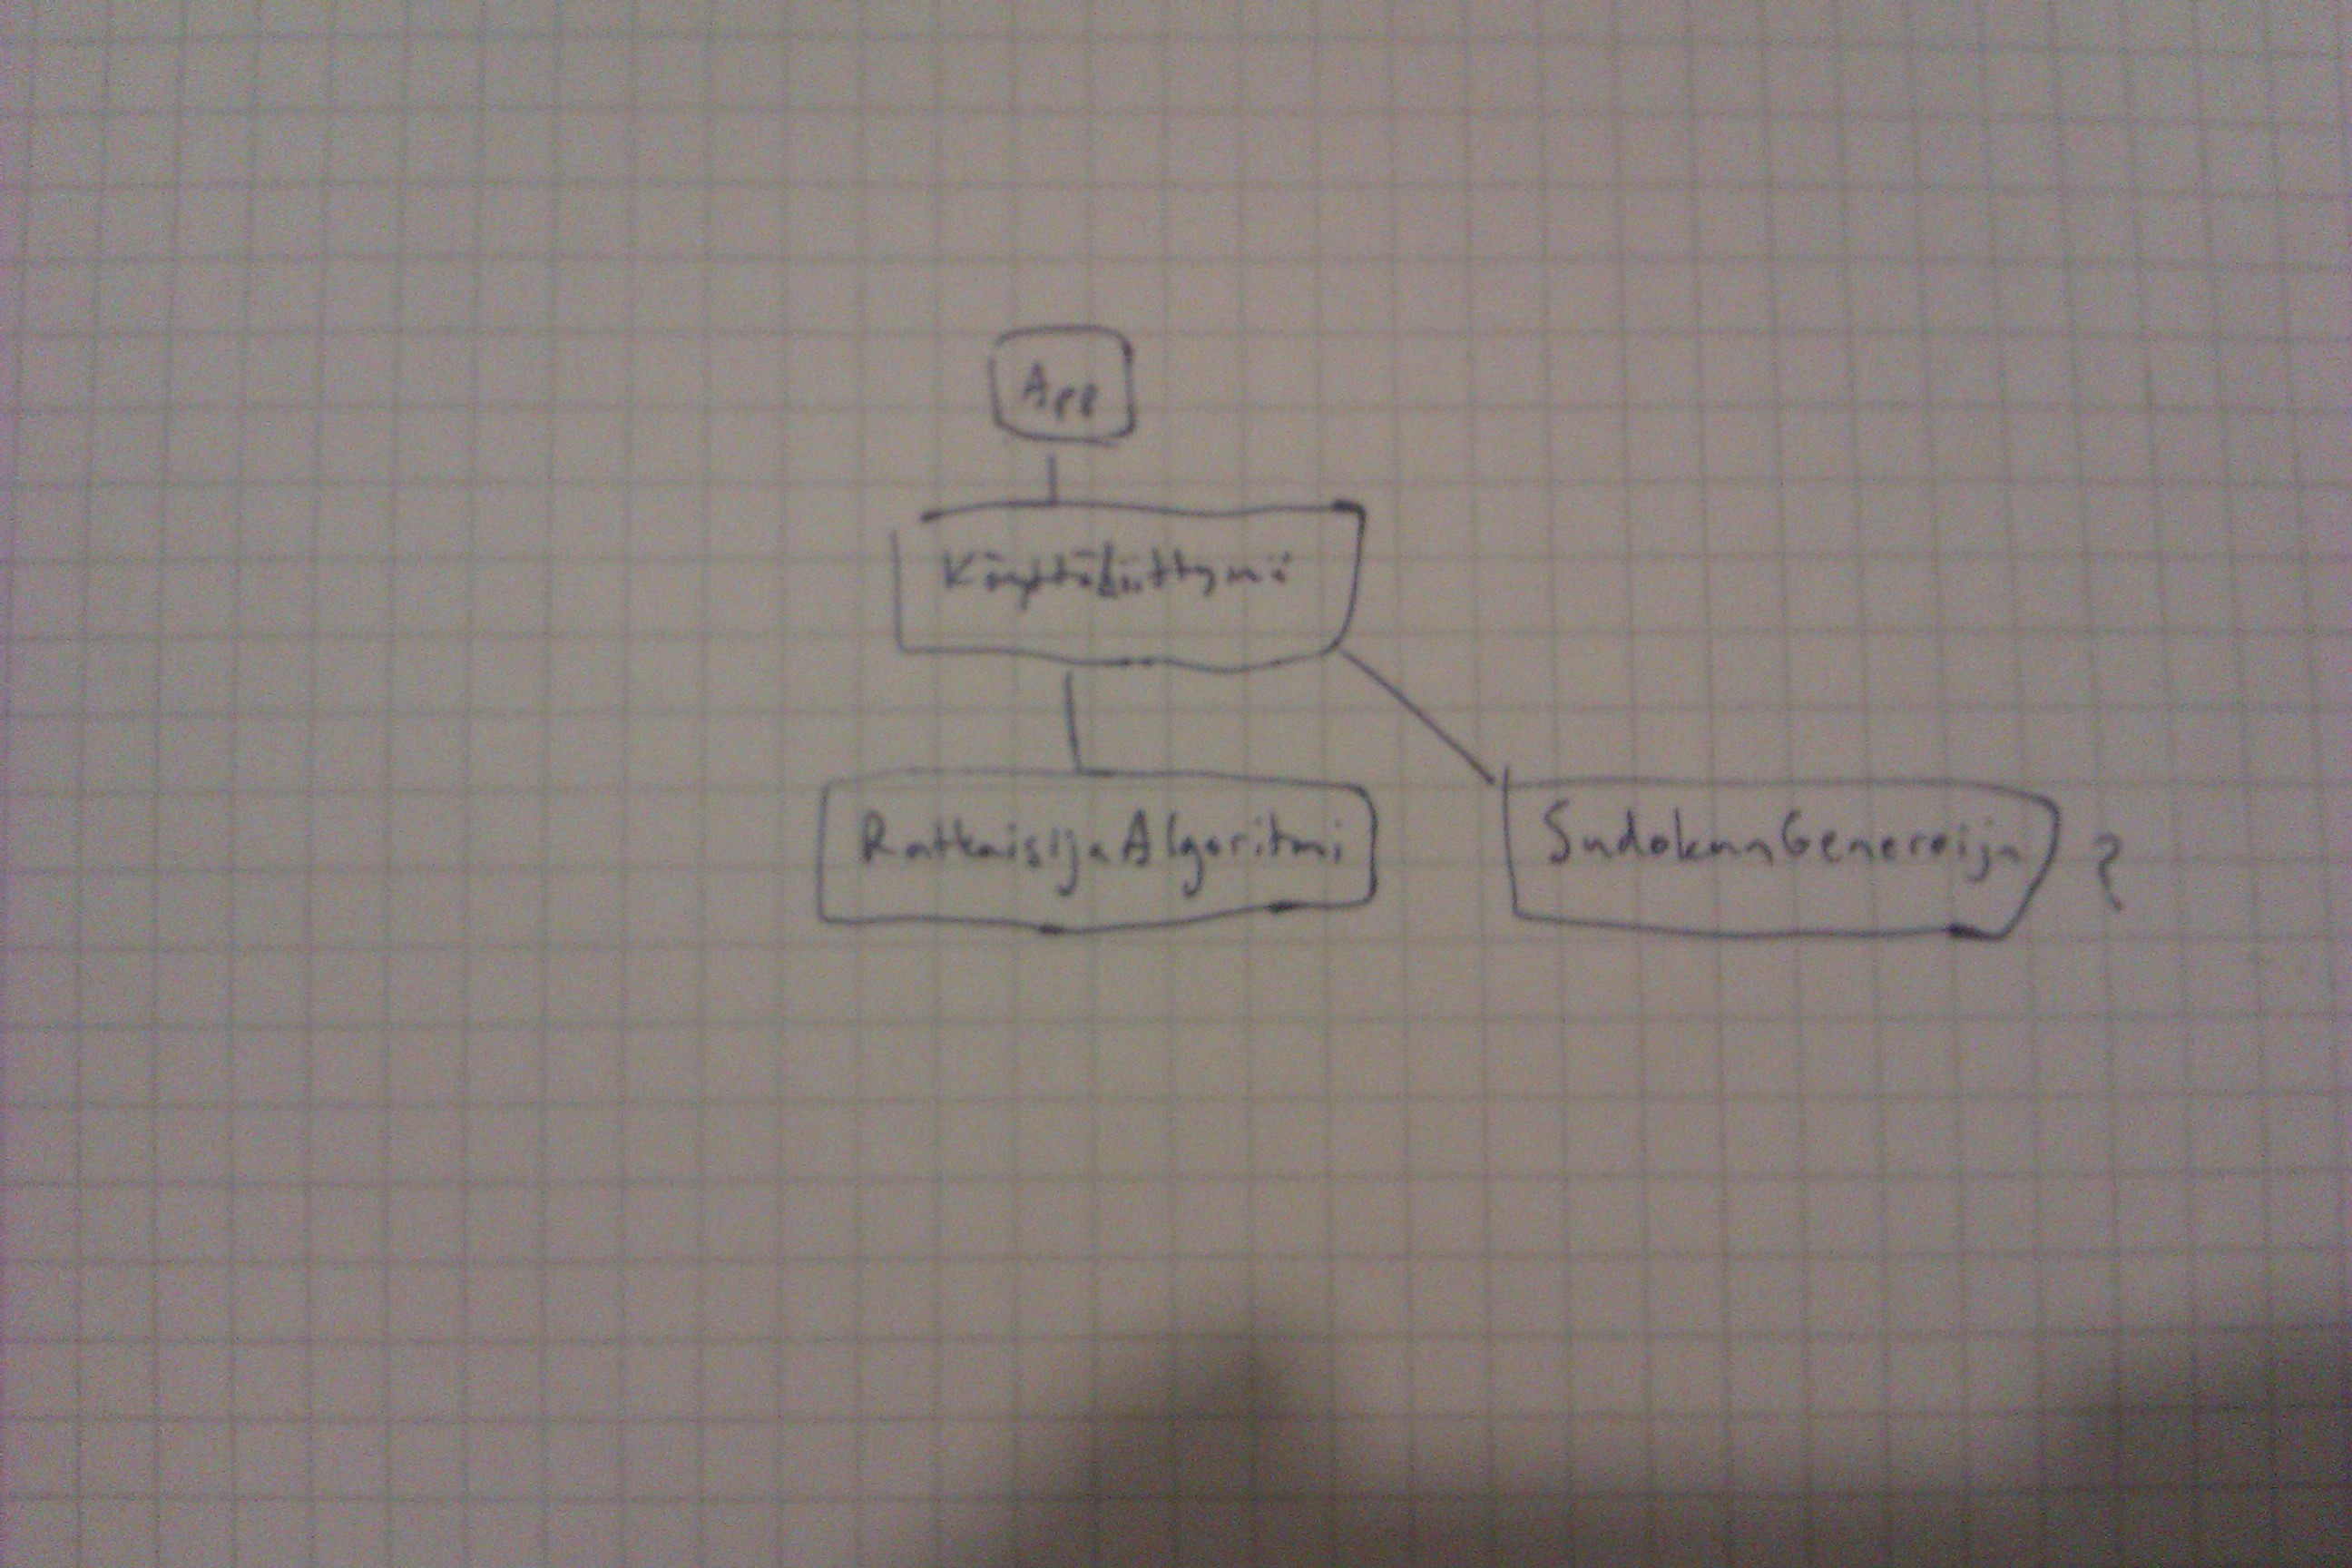 App
Käyttöliittymä
RatkaisijaAlgoritmi
SudokunGeneroija ?